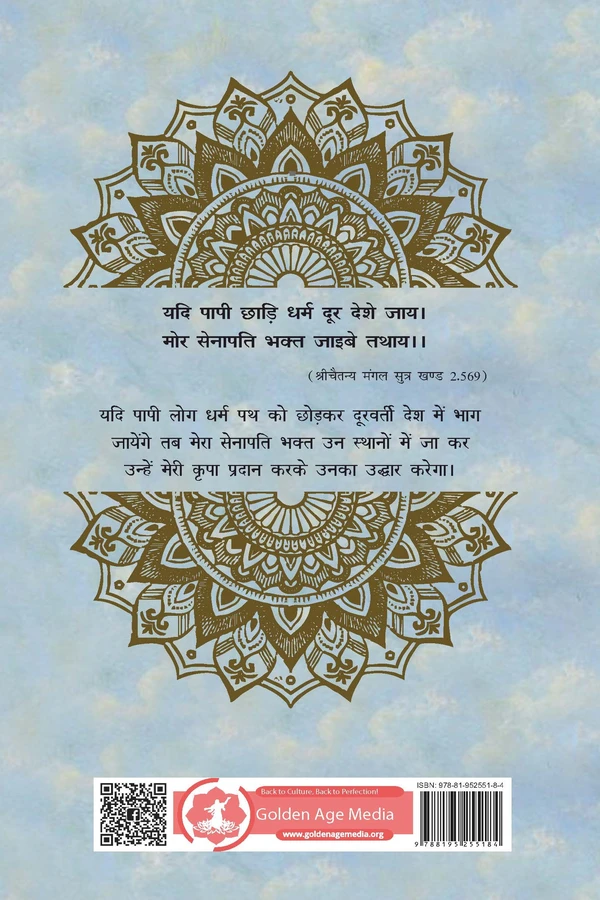 यदि पापी छाड़ि धर्म दूर देशे जाय।
मोर सेनापति भक्त जाइबे तथाय।।
(श्रीचैतन्य मंगल सुत्र खण्ड 2.569)
यदि पापी लोग धर्म पथ को छोड़कर दूरवर्ती देश में भाग
जायेंगे तब मेरा सेनापति भक्त उन स्थानों में जा कर
उन्हें मेरी कृपा प्रदान करके उनका उद्धार करेगा।
Back to Culture, Back to Perfection!
Golden Age Media
www.goldenagemedia.org
ISBN: 978-81-952551-8-4
9 788195 255184